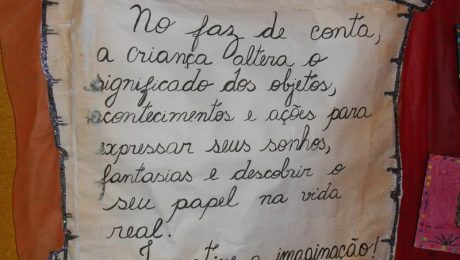 No faz de conta,
a criança altera o
significado dos objetos,
acontecimentos e ações para
expressar seus sonhos,
fantasias e descobrir o
seu papel na vida
real.
a imaginação!